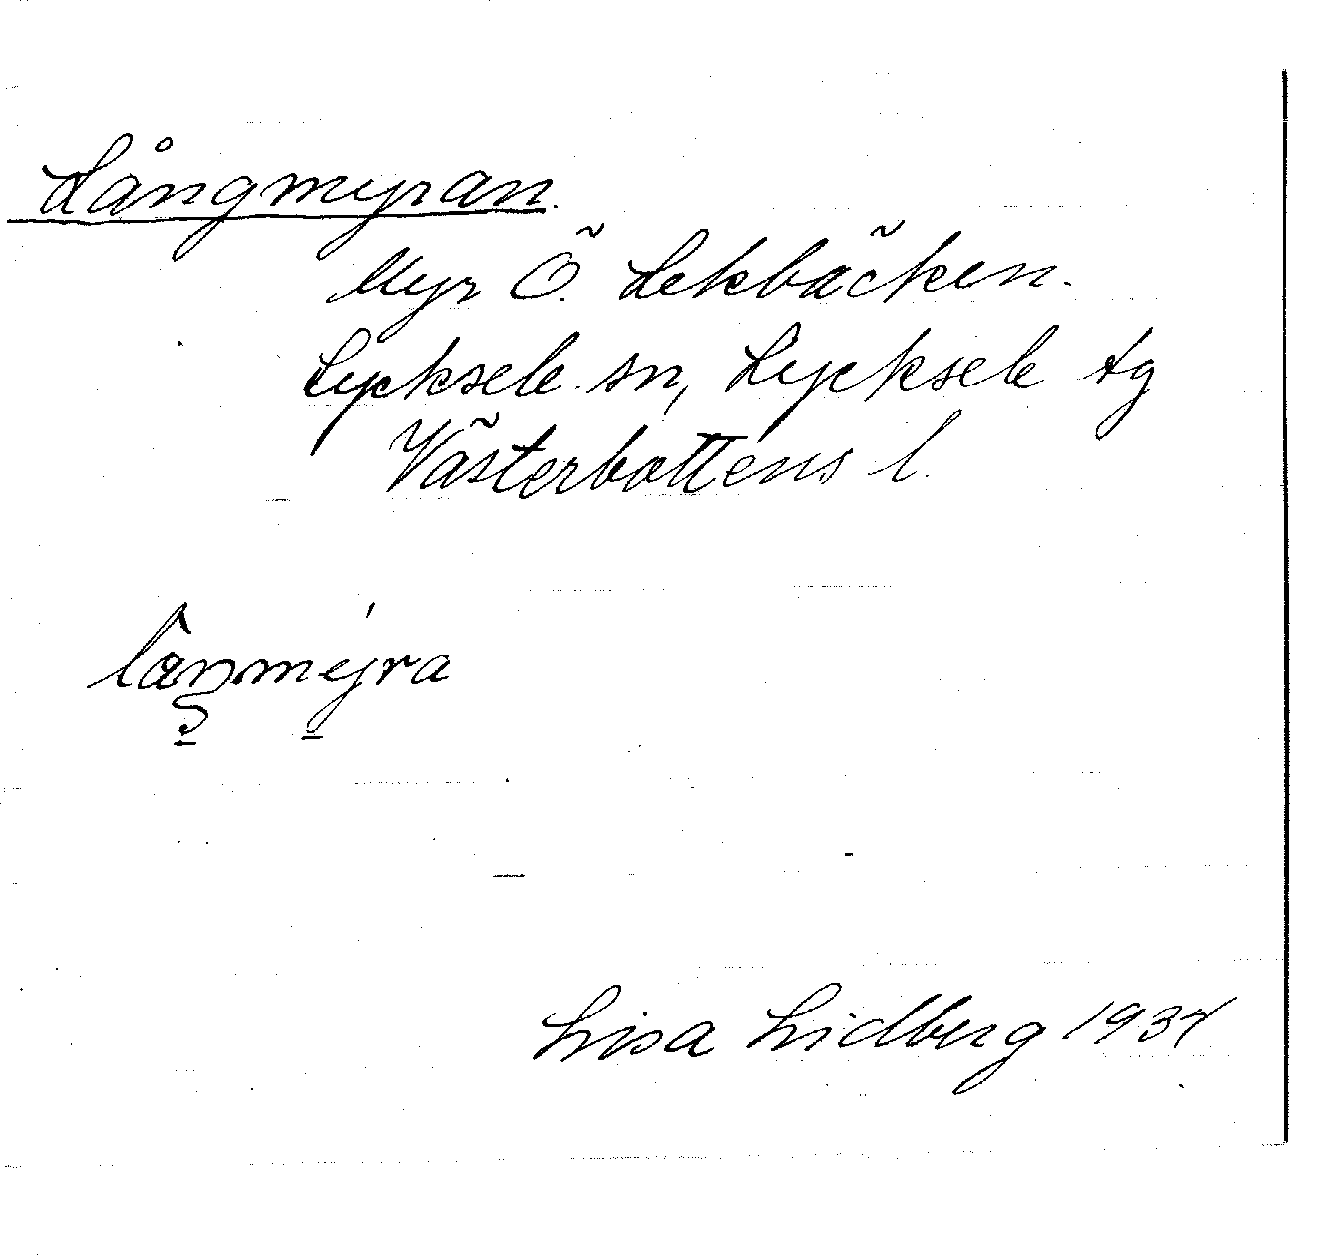 Långmyran.
Myr Ö. Lekbäcken.
Lycksele sn, Lycksele tg
Västerbottens l.
Lisa Lidberg 1934